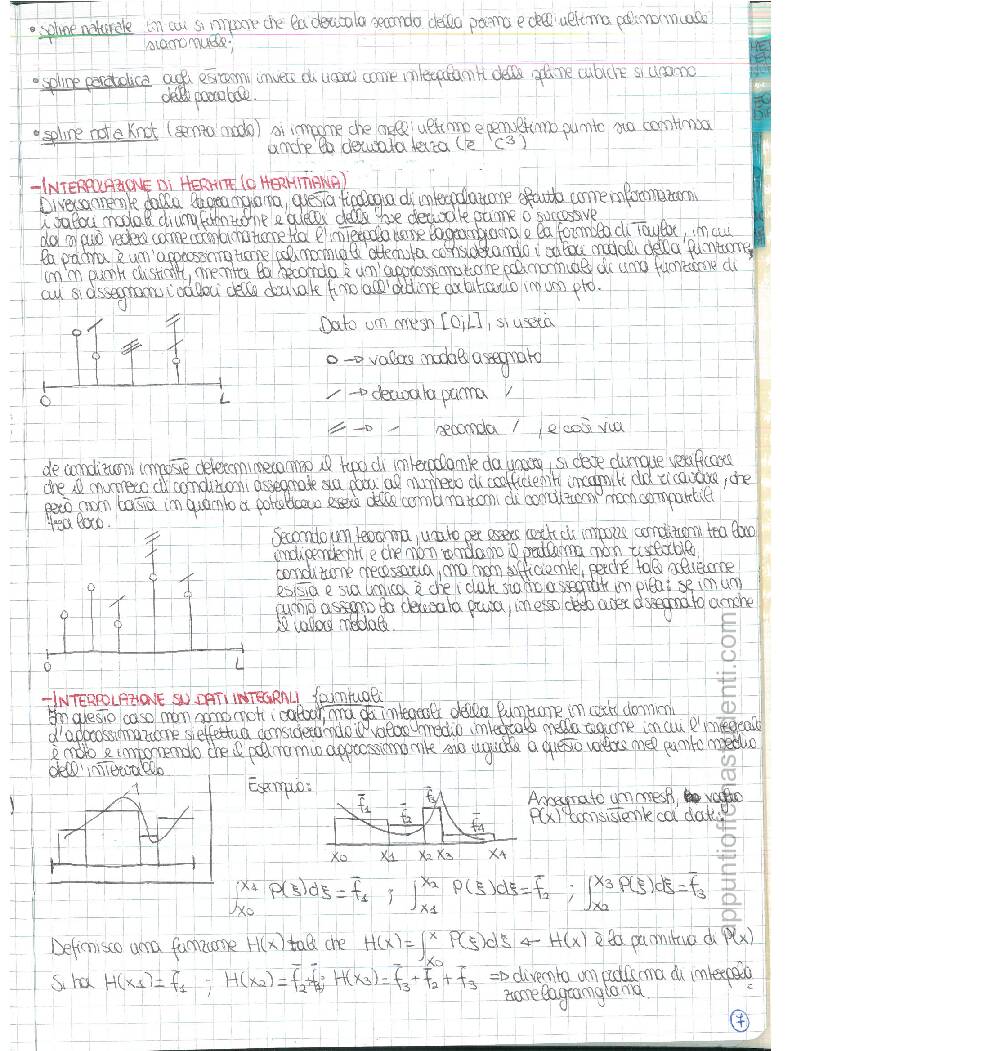 • spline naturale in cui si impone che la derivata seconda della prima e dell'ultima polinomiale
siano nulle;
• spline parabolica agli estremi invece di usare come interpolanti delle spline cubiche si usano
delle parabole.
• spline not a knot (senza nodo) si impone che nell'ultimo e penultimo punto sia continua
anche la derivata terza (è C³)
- INTERPOLAZIONE DI HERMITE (O HERMITIANA)
Diversamente dalla lagrangiana, questa tipologia di interpolazione sfrutta come informazioni
i valori nodali di una funzione e quelli delle sue derivate prime o successive
La si può vedere come combinazione tra l'interpolazione lagrangiana e la formula di Taylor, in cui
la prima è un'approssimazione polinomiale ottenuta considerando i valori nodali della funzione
in n punti distinti, mentre la seconda è un'approssimazione polinomiale di una funzione di
cui si assegnano i valori delle derivate fino all'ordine arbitrario in un pto.
Dato un mesh [0;L], si userà
o → valore nodale assegnato
→ derivata prima /
→ - seconda / , e così via
0 L
Le condizioni imposte determineranno il tipo di interpolante da usare, si deve dunque verificare
che il numero di condizioni assegnate sia pari al numero di coefficienti incogniti da ricavare, che
però non basta in quanto ci potrebbero essere delle combinazioni di condizioni non compatibili
tra loro.
Secondo un teorema, usato per essere certi di imporre condizioni tra loro
indipendenti e che non rendano il problema non risolubile,
condizione necessaria, ma non sufficiente, perché tale soluzione
esista e sia unica è che i dati siano assegnati in pila: se in un
punto assegno la derivata prima, in esso devo aver assegnato anche
il valore nodale.
0 L
- INTERPOLAZIONE SU DATI INTEGRALI puntuali
In questo caso non sono noti i valori, ma gli integrali della funzione in certi domini
L'approssimazione si effettua considerando il valore medio integrale nella regione in cui l'integrale
è noto e imponendo che il polinomio approssimante sia uguale a questo valore nel punto medio
dell'intervallo.
Esempio:
f̄₁ f̄₂ f̄₃ f̄₄
x₀ x₁ x₂ x₃ x₄
Assegnato un mesh, voglio
P(x) consistente coi dati:
∫ₓ₀ˣ¹ P(ξ)dξ = f̄₁ ; ∫ₓ₁ˣ² P(ξ)dξ = f̄₂ ; ∫ₓ₂ˣ³ P(ξ)dξ = f̄₃
Definisco una funzione H(x) tale che H(x) = ∫ₓ₀ˣ P(ξ)dξ ← H(x) è la primitiva di P(x)
Si ha H(x₁) = f̄₁ ; H(x₂) = f̄₂+f̄₁; H(x₃) = f̄₃ + f̄₂ + f̄₃ ⇒ diventa un problema di interpola
zione lagrangiana.
7
appuntiofficinastudenti.com